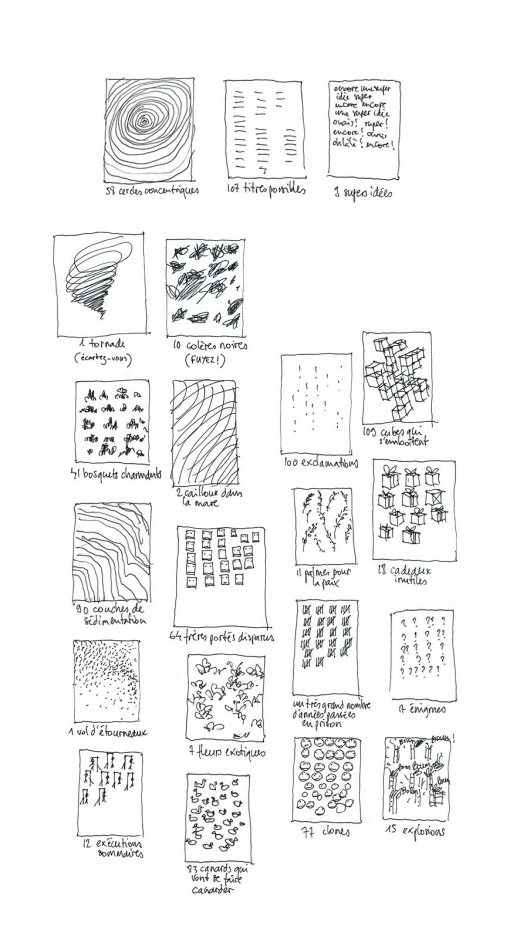 58 cercles concentriques
107 titres possibles
encore une super
idée super
encore encore
une super idée
ouais! super!
encore! ouais
oh là là! encore!
9 supers idées
1 tornade
(écartez-vous)
10 colères noires
(FUYEZ!)
109 cubes qui
s'emboîtent
100 exclamations
41 bosquets charmants
2 cailloux dans
la mare
11 palmes pour
la paix
18 cadeaux
inutiles
90 couches de
sédimentation
64 frères portés disparus
un très grand nombre
d'années passées
en prison
? ? ?? ?
17 énigmes
1 vol d'étourneaux
7 fleurs exotiques
Boum!
Boum
Boum
77 clones
15 explosions
12 exécutions
sommaires
83 canards qui
vont se faire
canarder